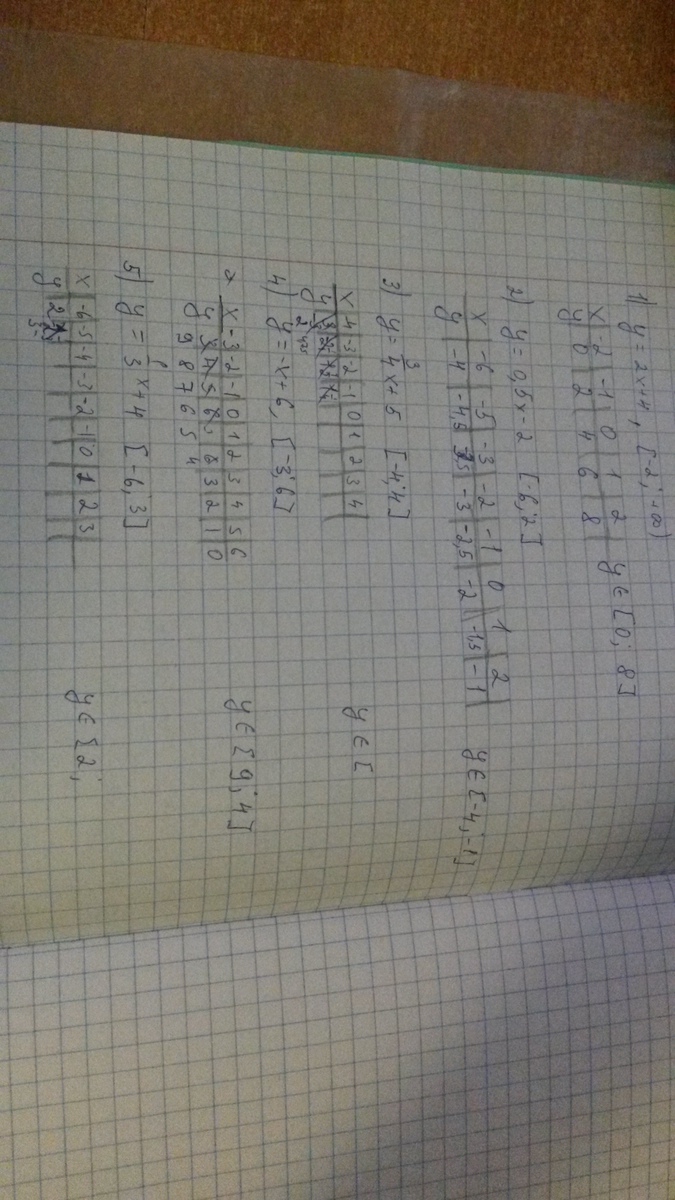 1) y = 2x+4, [-2; +∞)
x -2 -1 0 1 2
y 0 2 4 6 8 y ∈ [0; 8]
2) y = 0,5x-2 [-6; 2]
x -6 -5 -3 -2 -1 0 1 2
y -4 -4,5 -3 -2,5 -2 -1,5 -1 y ∈ [-4; -1]
3) y = 3/4 x+5 [-4; 4]
x -4 -3 -2 -1 0 1 2 3 4
y y ∈ [
4) y = -x+6, [-3; 6]
x -3 -2 -1 0 1 2 3 4 5 6
y 3 2 1 0
9 8 7 6 5 4 y ∈ [9; 4]
5) y = 1/3 x+4 [-6; 3]
x -6 -5 -4 -3 -2 -1 0 1 2 3
y 2 y ∈ [2;